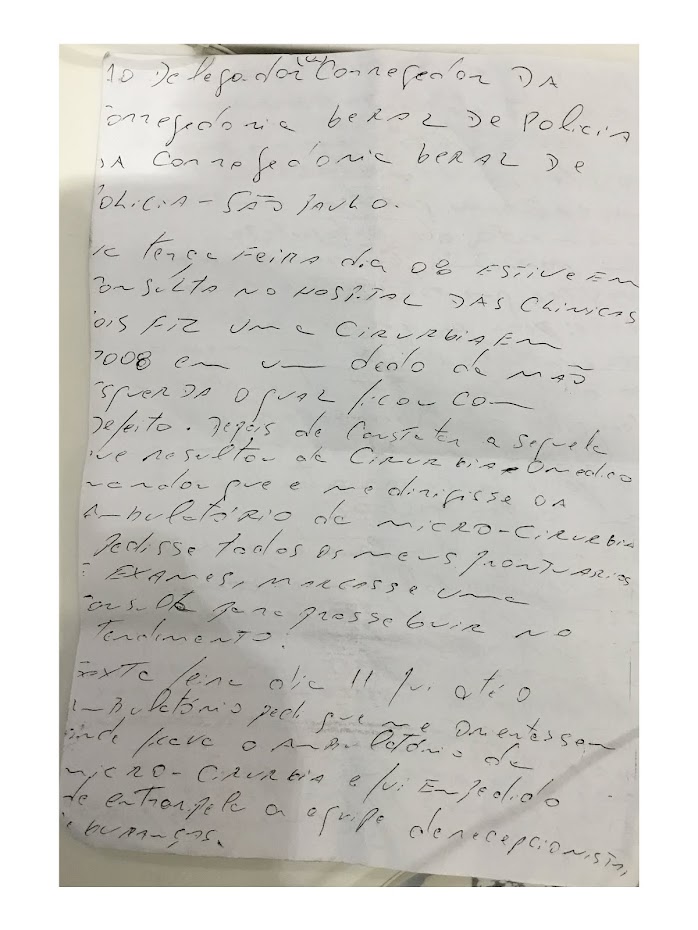 AO Delegador Corregedor DA
Corregedoria GERAL DE Policia
DA Corregedoria GERAL De
POLICIA - SÃO PAULO.
terça FEIRA dia 08 ESTIVE EM
CONSULTA NO HOSPITAL DAS CLINICAS
POIS FIZ UMA CIRURGIA EM
2008 em um dedo da MÃO
ESQUERDA O QUAL ficou COM
Defeito. Depois de Constatar a sequela
que resultou da CIRURGIA O medico
mandou que e me dirigisse DA
AMBULATÓRIO de MICRO-CIRURGIA
Pedisse todos os meus PRONTUARIOS
E EXAMES, MARCASSE UMA
Consulta para prosseguir NO
atendimento.
SEXTA feira dia 11 fui até O
AMBULATÓRIO pedi que me Orientassem
onde ficava O AMBULATÓRIO de
MICRO-CIRURGIA e fui Empedido
de entrar pela a equipe de recepcionistas,
e GURANÇAS.